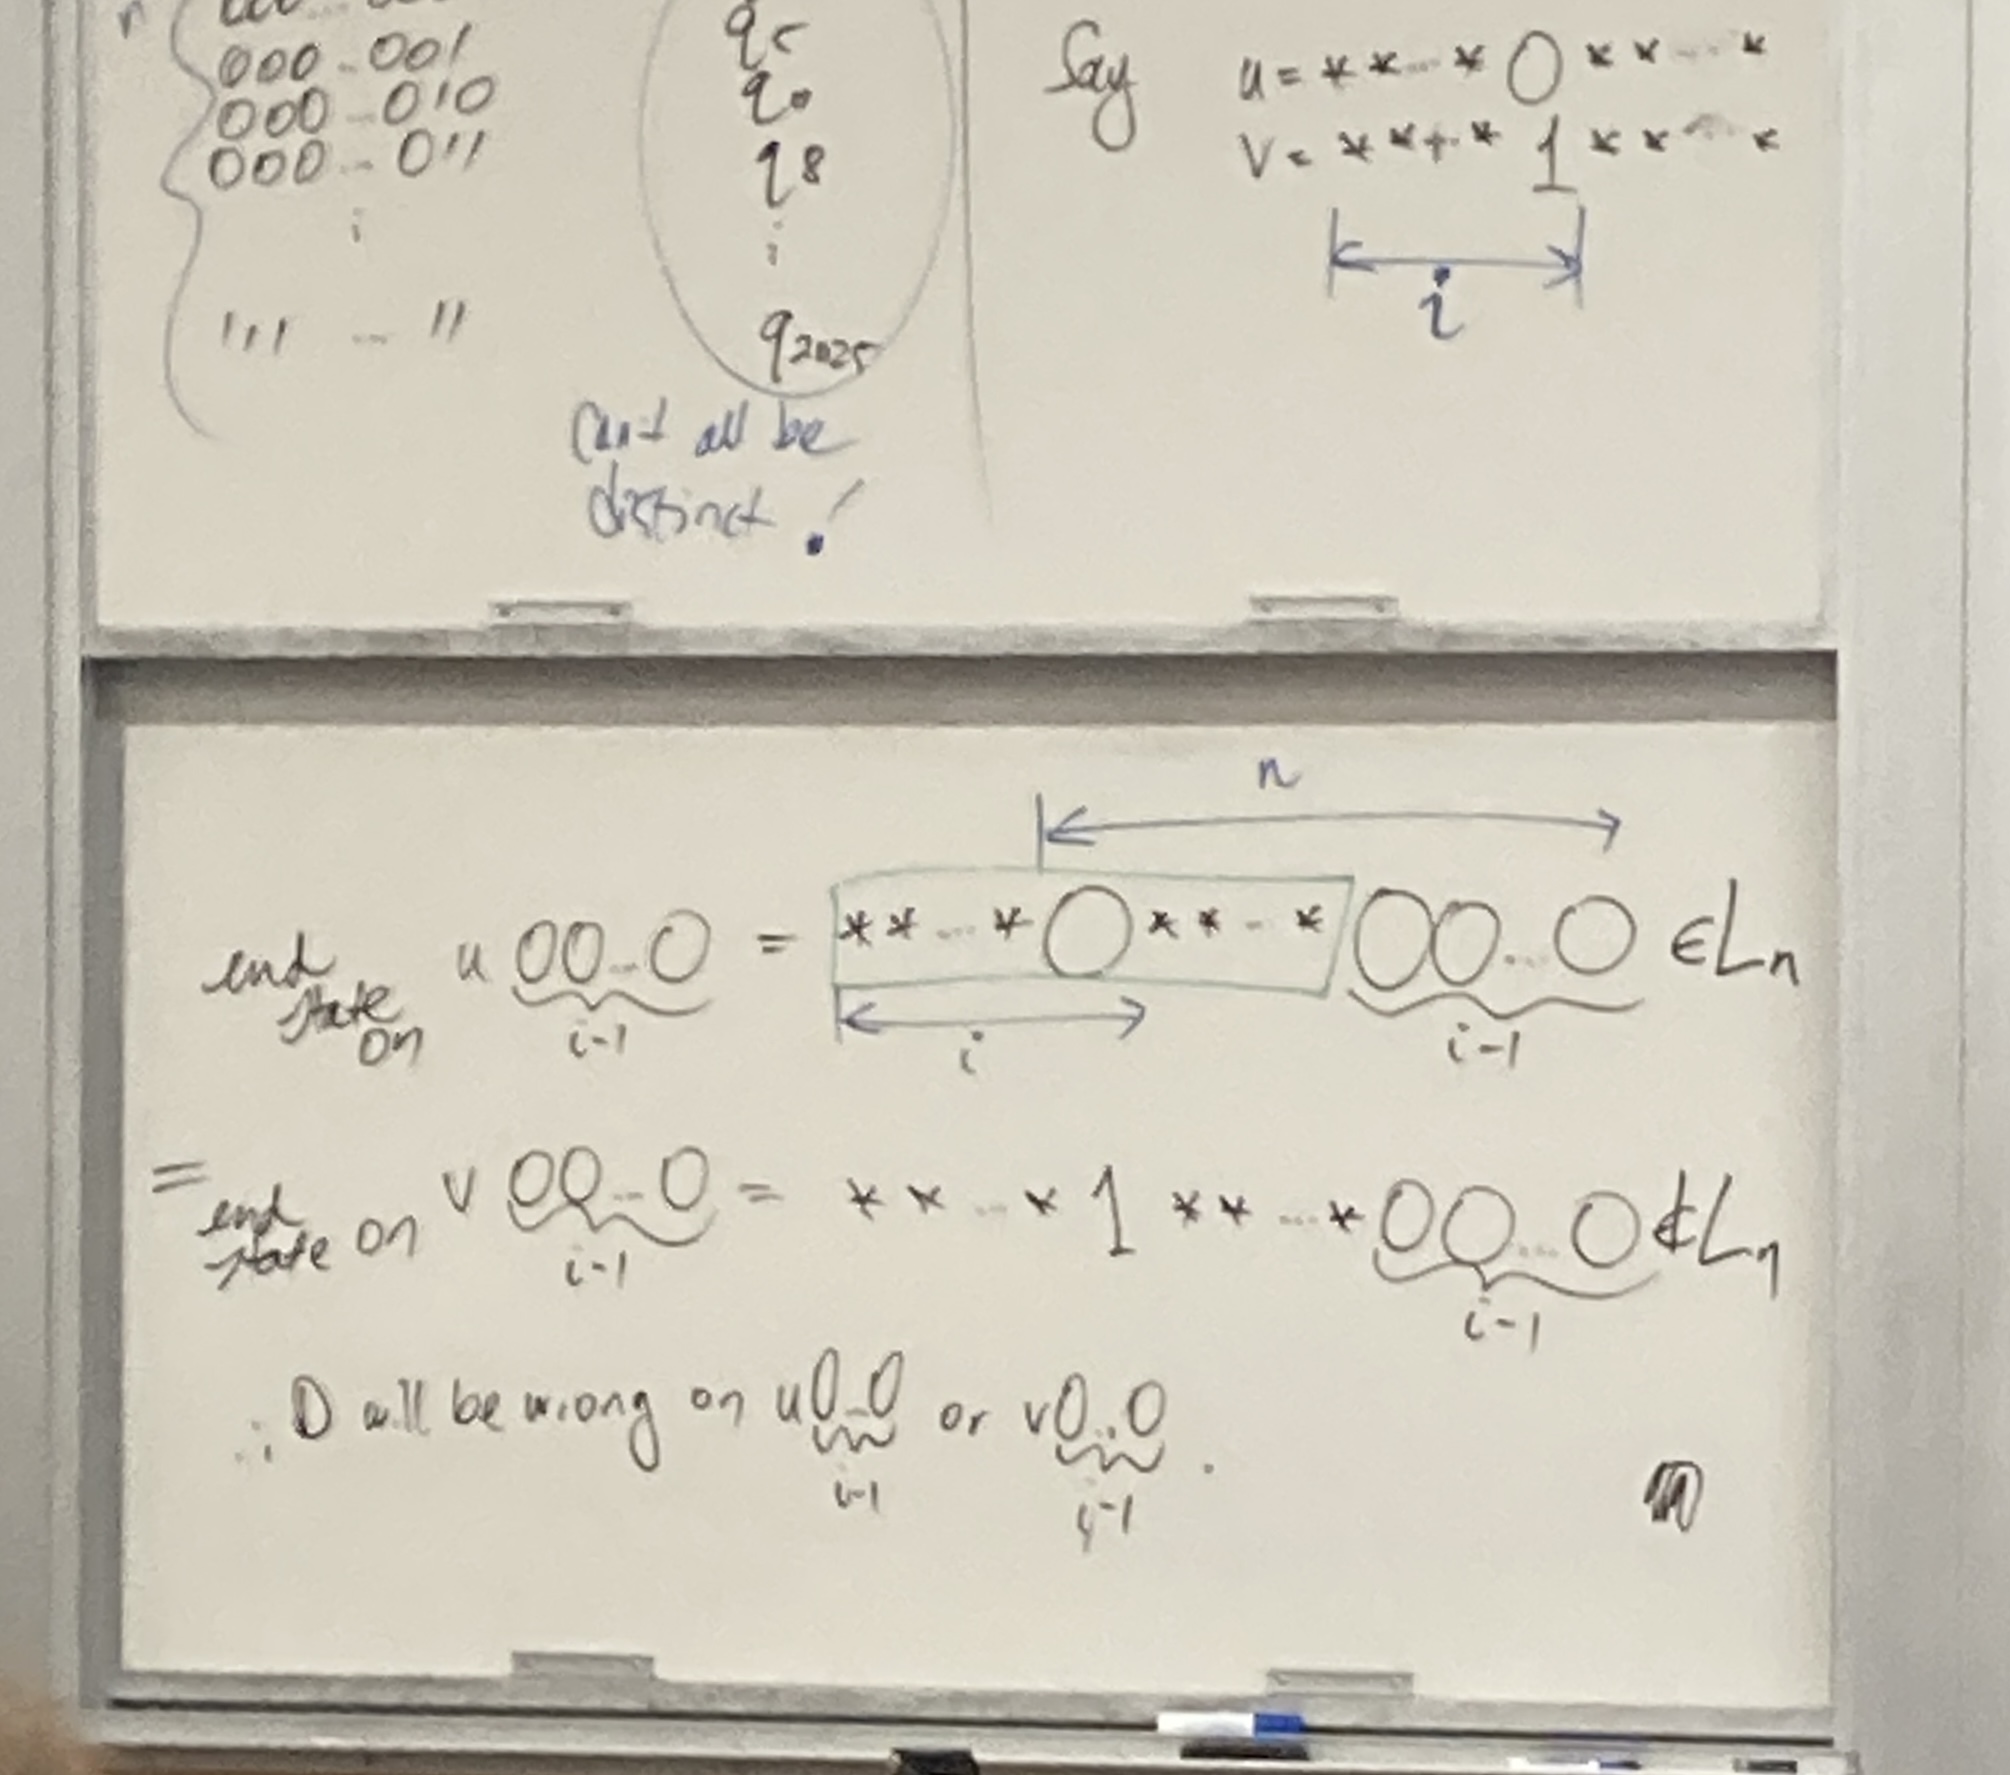 000...001
000...010
000...011
⋮
111 ... 11
q5
q0
q8
⋮
q2025
can't all be
distinct!
Say u = * * ... * 0 * * ... *
v = * * ... * 1 * * ... *
i
n
end state on u 00...0 = * * ... * 0 * * ... * 00...0 ∈ Ln
i-1 i i-1
= end state on v 00...0 = * * ... * 1 * * ... * 00...0 ∉ Ln
i-1 i-1
∴ D will be wrong on u0..0 or v0..0.
i-1 i-1